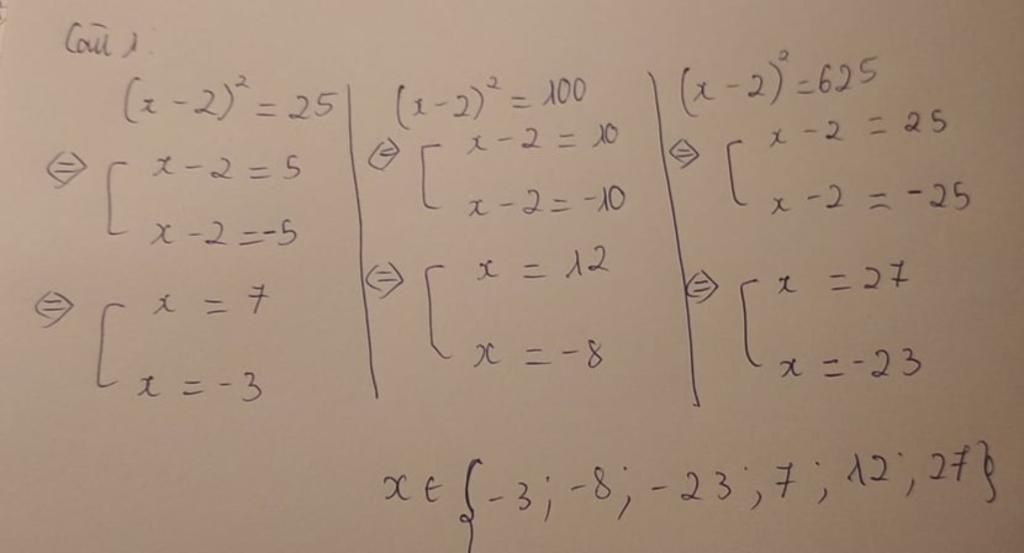 Câu 1:
(x - 2)² = 25
⇔ [ x - 2 = 5
x - 2 = -5
⇔ [ x = 7
x = -3
(x - 2)² = 100
⇔ [ x - 2 = 10
x - 2 = -10
⇔ [ x = 12
x = -8
(x - 2)² = 625
⇔ [ x - 2 = 25
x - 2 = -25
⇔ [ x = 27
x = -23
x ∈ {-3; -8; -23; 7; 12; 27}